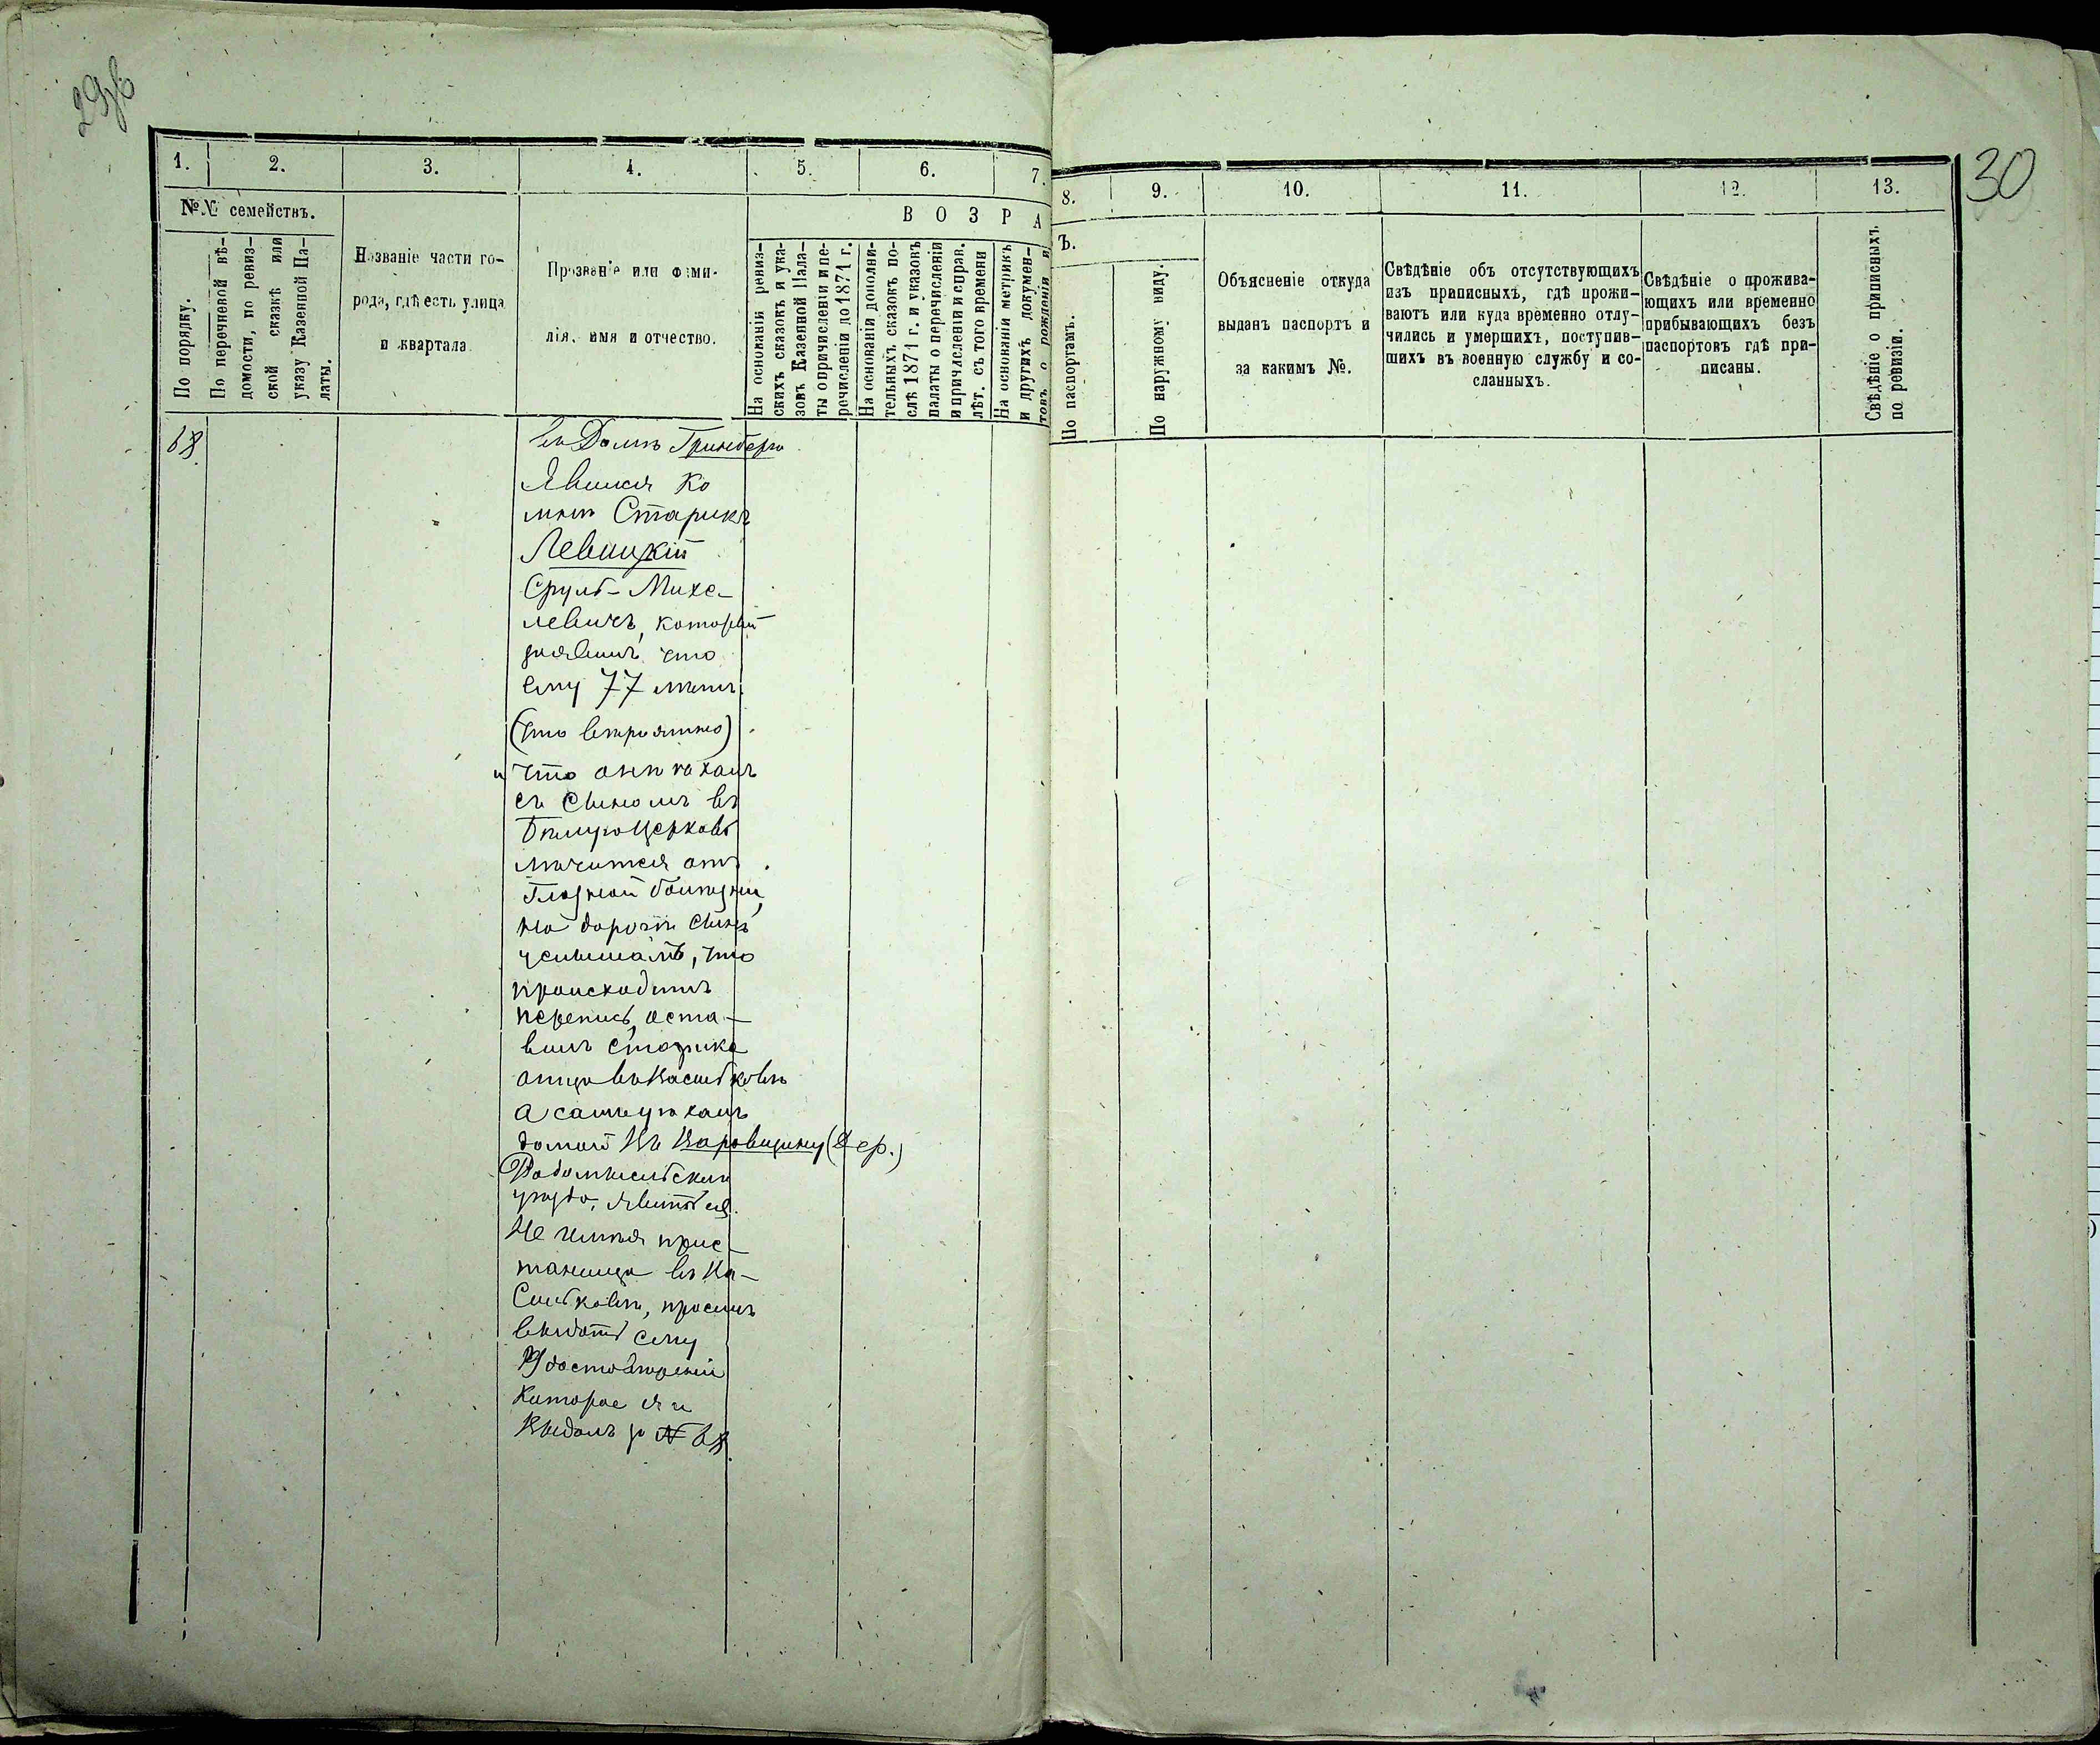 29об
30
1. 2. 3. 4. 5. 6. 7. 8. 9. 10. 11. 12. 13.
№№ семействъ.
В О З Р А
Ъ.
По порядку.
По перечневой вѣ-
домости, по ревиз-
ской сказкѣ или
указу Казенной Па-
латы.
Названіе части го-
рода, гдѣ есть улица
и квартала.
Прозваніе или фами-
лія, имя и отчество.
На основаніи ревиз-
скихъ сказокъ и ука-
зовъ Казенной Пала-
ты о причисленіи и пе-
речисленіи до 1871 г.
На основаніи дополни-
тельныхъ сказокъ по-
слѣ 1871 г. и указовъ
палаты о перечисленіи
и причисленіи и справ.
лѣт. съ того времени
На основаніи метрикъ
и другихъ докумен-
товъ о рожденіи и
По паспортамъ.
По наружному виду.
Объясненіе откуда
выданъ паспортъ и
за какимъ №.
Свѣдѣніе объ отсутствующихъ
изъ приписныхъ, гдѣ прожи-
ваютъ или куда временно отлу-
чились и умершихъ, поступив-
шихъ въ военную службу и со-
сланныхъ.
Свѣдѣніе о прожива-
ющихъ или временно
прибывающихъ безъ
паспортовъ гдѣ при-
писаны.
Свѣдѣніе о приписныхъ
по ревизіи.
68.
въ Домѣ Гринберга
Явился ко
мнѣ Старикъ
Левицкій
Сруль-Михе-
левичъ, который
заявилъ что
ему 77 лѣтъ.
(что вѣроятно)
и что онъ ѣхалъ
съ сыномъ въ
Бѣлую Церковь
лѣчится отъ
Глазной болѣзни,
на дорогѣ сынъ
услышалъ, что
происходитъ
перепись, оста-
вилъ старика
отца въ Васильковѣ
а самъ уѣхалъ
домой въ Варовщину (Дер.)
Радомысльскаго
уѣзда, явиться.
Не имѣя прис-
танища въ Ва-
сильковѣ, проситъ
выдать ему
Удостовѣреніе
Которое я и
Выдалъ за № 68.